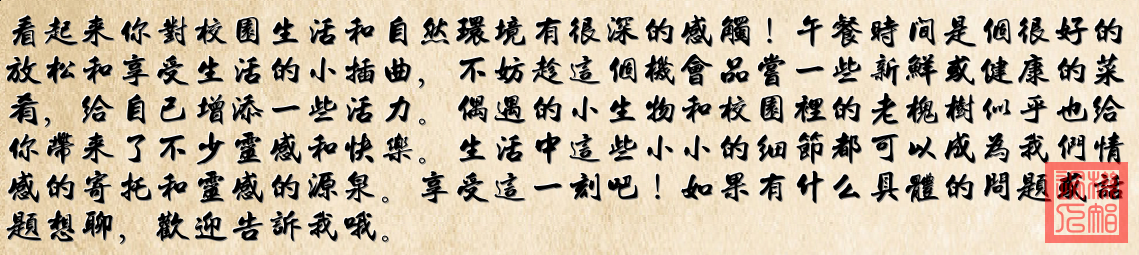 看起来你對校園生活和自然環境有很深的感觸！午餐時间是個很好的
放松和享受生活的小插曲，不妨趁這個機會品嘗一些新鮮或健康的菜
肴，给自己增添一些活力。偶遇的小生物和校園裡的老槐樹似乎也给
你帶来了不少靈感和快樂。生活中這些小小的细節都可以成為我們情
感的寄托和靈感的源泉。享受這一刻吧！如果有什么具體的問題或話
題想聊，歡迎告訴我哦。